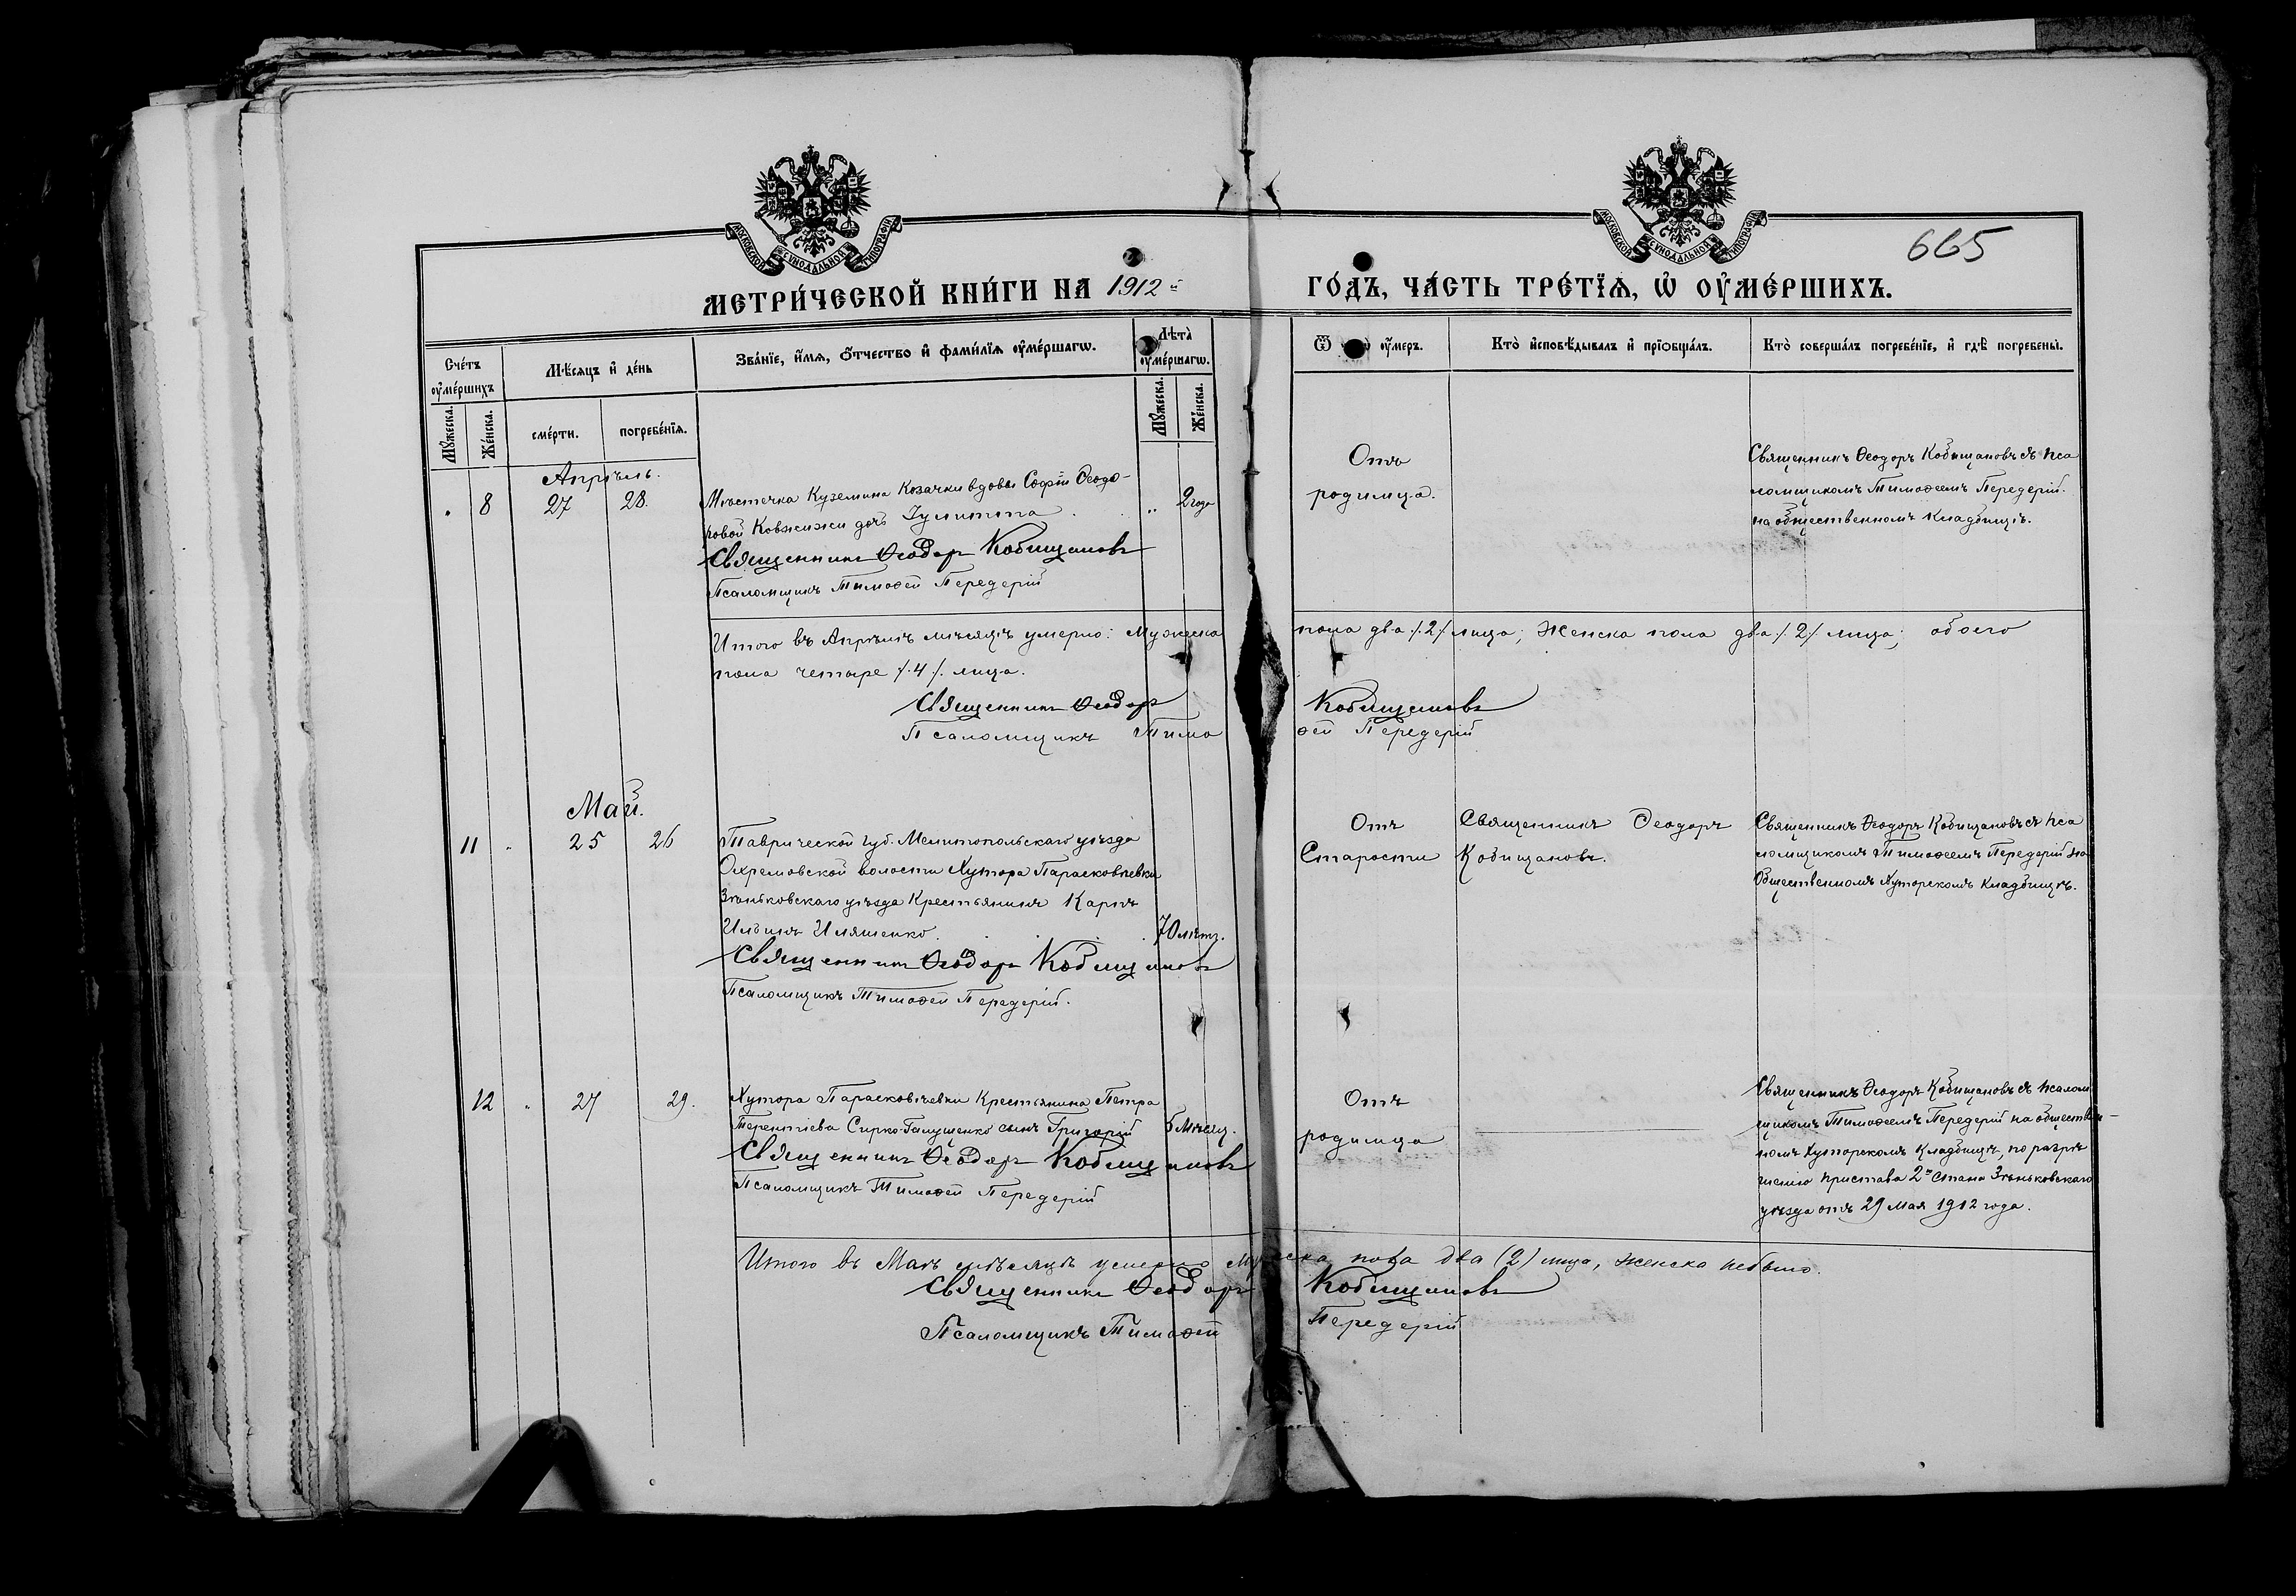 МОСКОВСКОЙ СѴНОДАЛЬНОЙ ТИПОГРАФІИ
МОСКОВСКОЙ СѴНОДАЛЬНОЙ ТИПОГРАФІИ
665
МЕТРИ́ЧЕСКОЙ КНИ́ГИ НА 1912й ГО́ДЪ, ЧА́СТЬ ТРЕ́ТЇѦ, Ѡ҆ ОУ҆МЕ́РШИХЪ.
Сче́тъ оу҆ме́ршихъ
Мѣ́сѧцъ и҆ де́нь
Зва́нїе, и҆́мѧ, ѻ҆́тчество и҆ фами́лїѧ оу҆ме́ршагѡ.
Лѣ́та оу҆ме́ршагѡ.
Ѿ оу҆́меръ.
Кто̀ и҆сповѣ́дывалъ и҆ прїѡбща́лъ.
Кто̀ соверша́лъ погребе́нїе, и҆ гдѣ̀ погребены̀.
Мꙋ́жеска.
Же́нска.
сме́рти.
погребе́нїѧ.
Мꙋ́жеска.
Же́нска.
Апрѣль.
8 27 28.
Мѣстечка Куземина Козачки вдовы Софіи Ѳеодо-
ровой Ковжижи дочь Іулитта
2 года
Священникъ Ѳеодоръ Кобищановъ
Псаломщикъ Тимоѳей Передерій
Отъ
родимца.
Священникъ Ѳеодоръ Кобищановъ съ Пса
ломщикомъ Тимоѳеемъ Передерій.
на общественномъ кладбищѣ.
Итого въ Апрѣлѣ мѣсяцѣ умерло: мужеска пола два /.2/. лица; женска пола два /. 2/. лица; обоего
пола четыре /.4/. лица.
Священникъ Ѳеодоръ Кобищановъ
Псаломщикъ Тимоѳей Передерій
Май.
11 25 26
Таврической губ. Мелитопольскаго уѣзда
Охремовской волости Хутора Парасковѣевки
Зѣньковскаго уѣзда Крестьянинъ Карпъ
Ильинъ Иляшенко
70 лѣтъ.
Священникъ Ѳеодоръ Кобищановъ
Псаломщикъ Тимоѳей Передерій.
Отъ
Старости
Священникъ Ѳеодоръ
Кобищановъ.
Священникъ Ѳеодоръ Кобищановъ съ Пса
ломщикомъ Тимоѳеемъ Передерій на
Общественномъ Хуторскомъ кладбищѣ.
12 27 29.
Хутора Парасковѣевки Крестьянина Петра
Терентіева Сирко-Галущенко сынъ Григорій
Мѣсяц.
Священникъ Ѳеодоръ Кобищановъ
Псаломщикъ Тимоѳей Передерій
Отъ
родимца
Священникъ Ѳеодоръ Кобищановъ съ псалом
щикомъ Тимоѳеемъ Передерій на обществен-
номъ Хуторскомъ кладбищѣ, по разрѣ
шенію пристава 2го стана Зѣньковскаго
уѣзда отъ 29 Мая 1912 года.
Итого въ Маѣ мѣсяцѣ умерло мужеска пола два (2) лица, женска небыло.
Священникъ Ѳеодоръ Кобищановъ
Псаломщикъ Тимоѳей Передерій